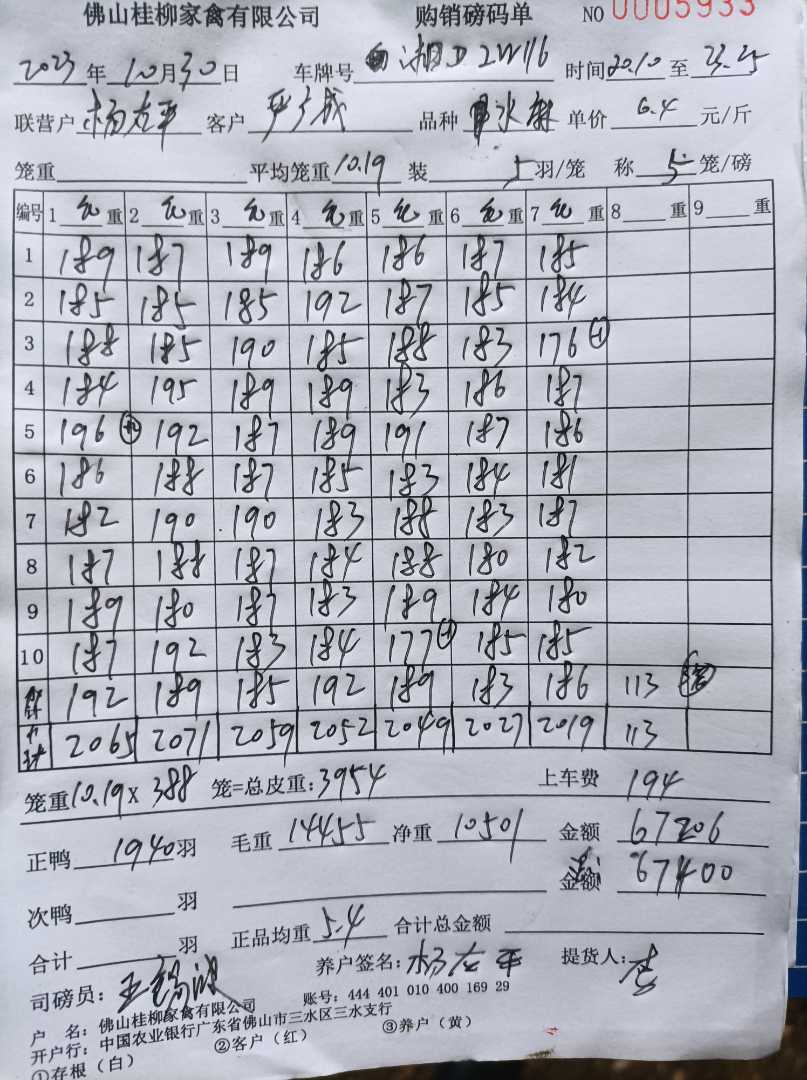 佛山桂柳家禽有限公司 购销磅码单 NO 0005933
2023年10月30日 车牌号 湘D 2W116 时间 20.10 至 23.25
联营户 杨左平 客户 严广成 品种 水鸭 单价 6.4 元/斤
笼重 平均笼重 10.19 装 5 羽/笼 称 5 笼/磅
编号 1 毛重 2 毛重 3 毛重 4 毛重 5 毛重 6 毛重 7 毛重 8 重 9 重
1 189 187 189 186 186 187 185
2 185 185 185 192 187 185 184
3 188 185 190 185 188 183 176
4 184 195 189 189 183 186 187
5 196 192 187 189 191 187 186
6 186 188 187 185 183 184 181
7 182 190 190 183 188 183 187
8 187 188 187 184 188 180 182
9 189 180 187 183 189 184 180
10 187 192 183 184 177 185 185
192 189 185 192 189 183 186 113
2065 2071 2059 2052 2049 2027 2019 113
笼重 10.19 x 388 笼=总皮重: 3954 上车费 194
正鸭 1940 羽 毛重 14455 净重 10501 金额 67206
金额 67400
次鸭 羽
合计 羽 正品均重 5.4 合计总金额
司磅员: 养户签名: 杨左平 提货人: 李
户 名: 佛山桂柳家禽有限公司 账号: 444 401 010 400 169 29
开户行: 中国农业银行广东省佛山市三水区三水支行
①存根（白） ②客户（红） ③养户（黄）